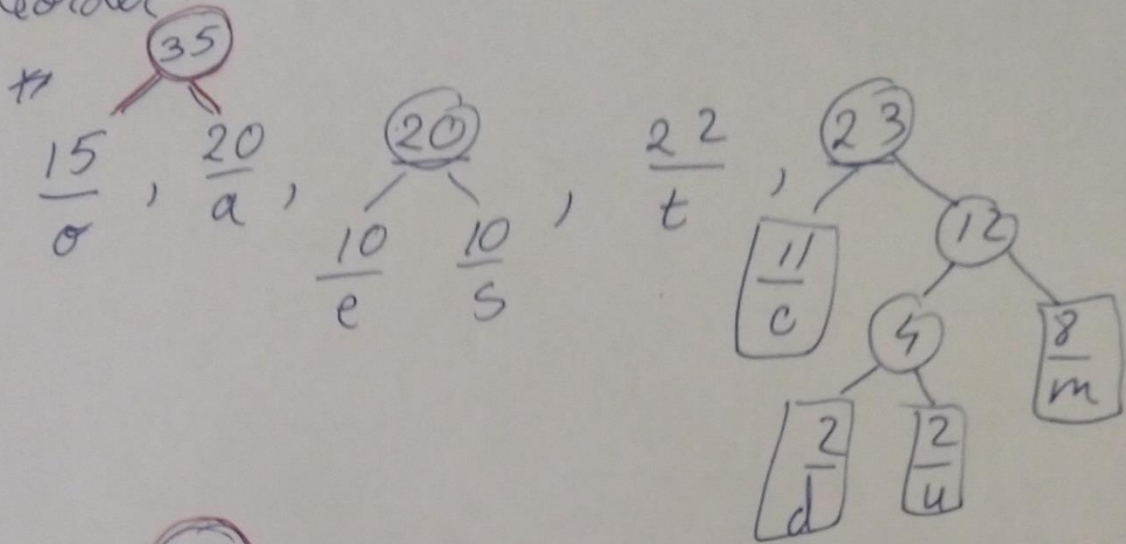 35
15/o , 20/a , 20 , 22/t , 23
10/e 10/s 11/c 12
4 8/m
2/d 2/u